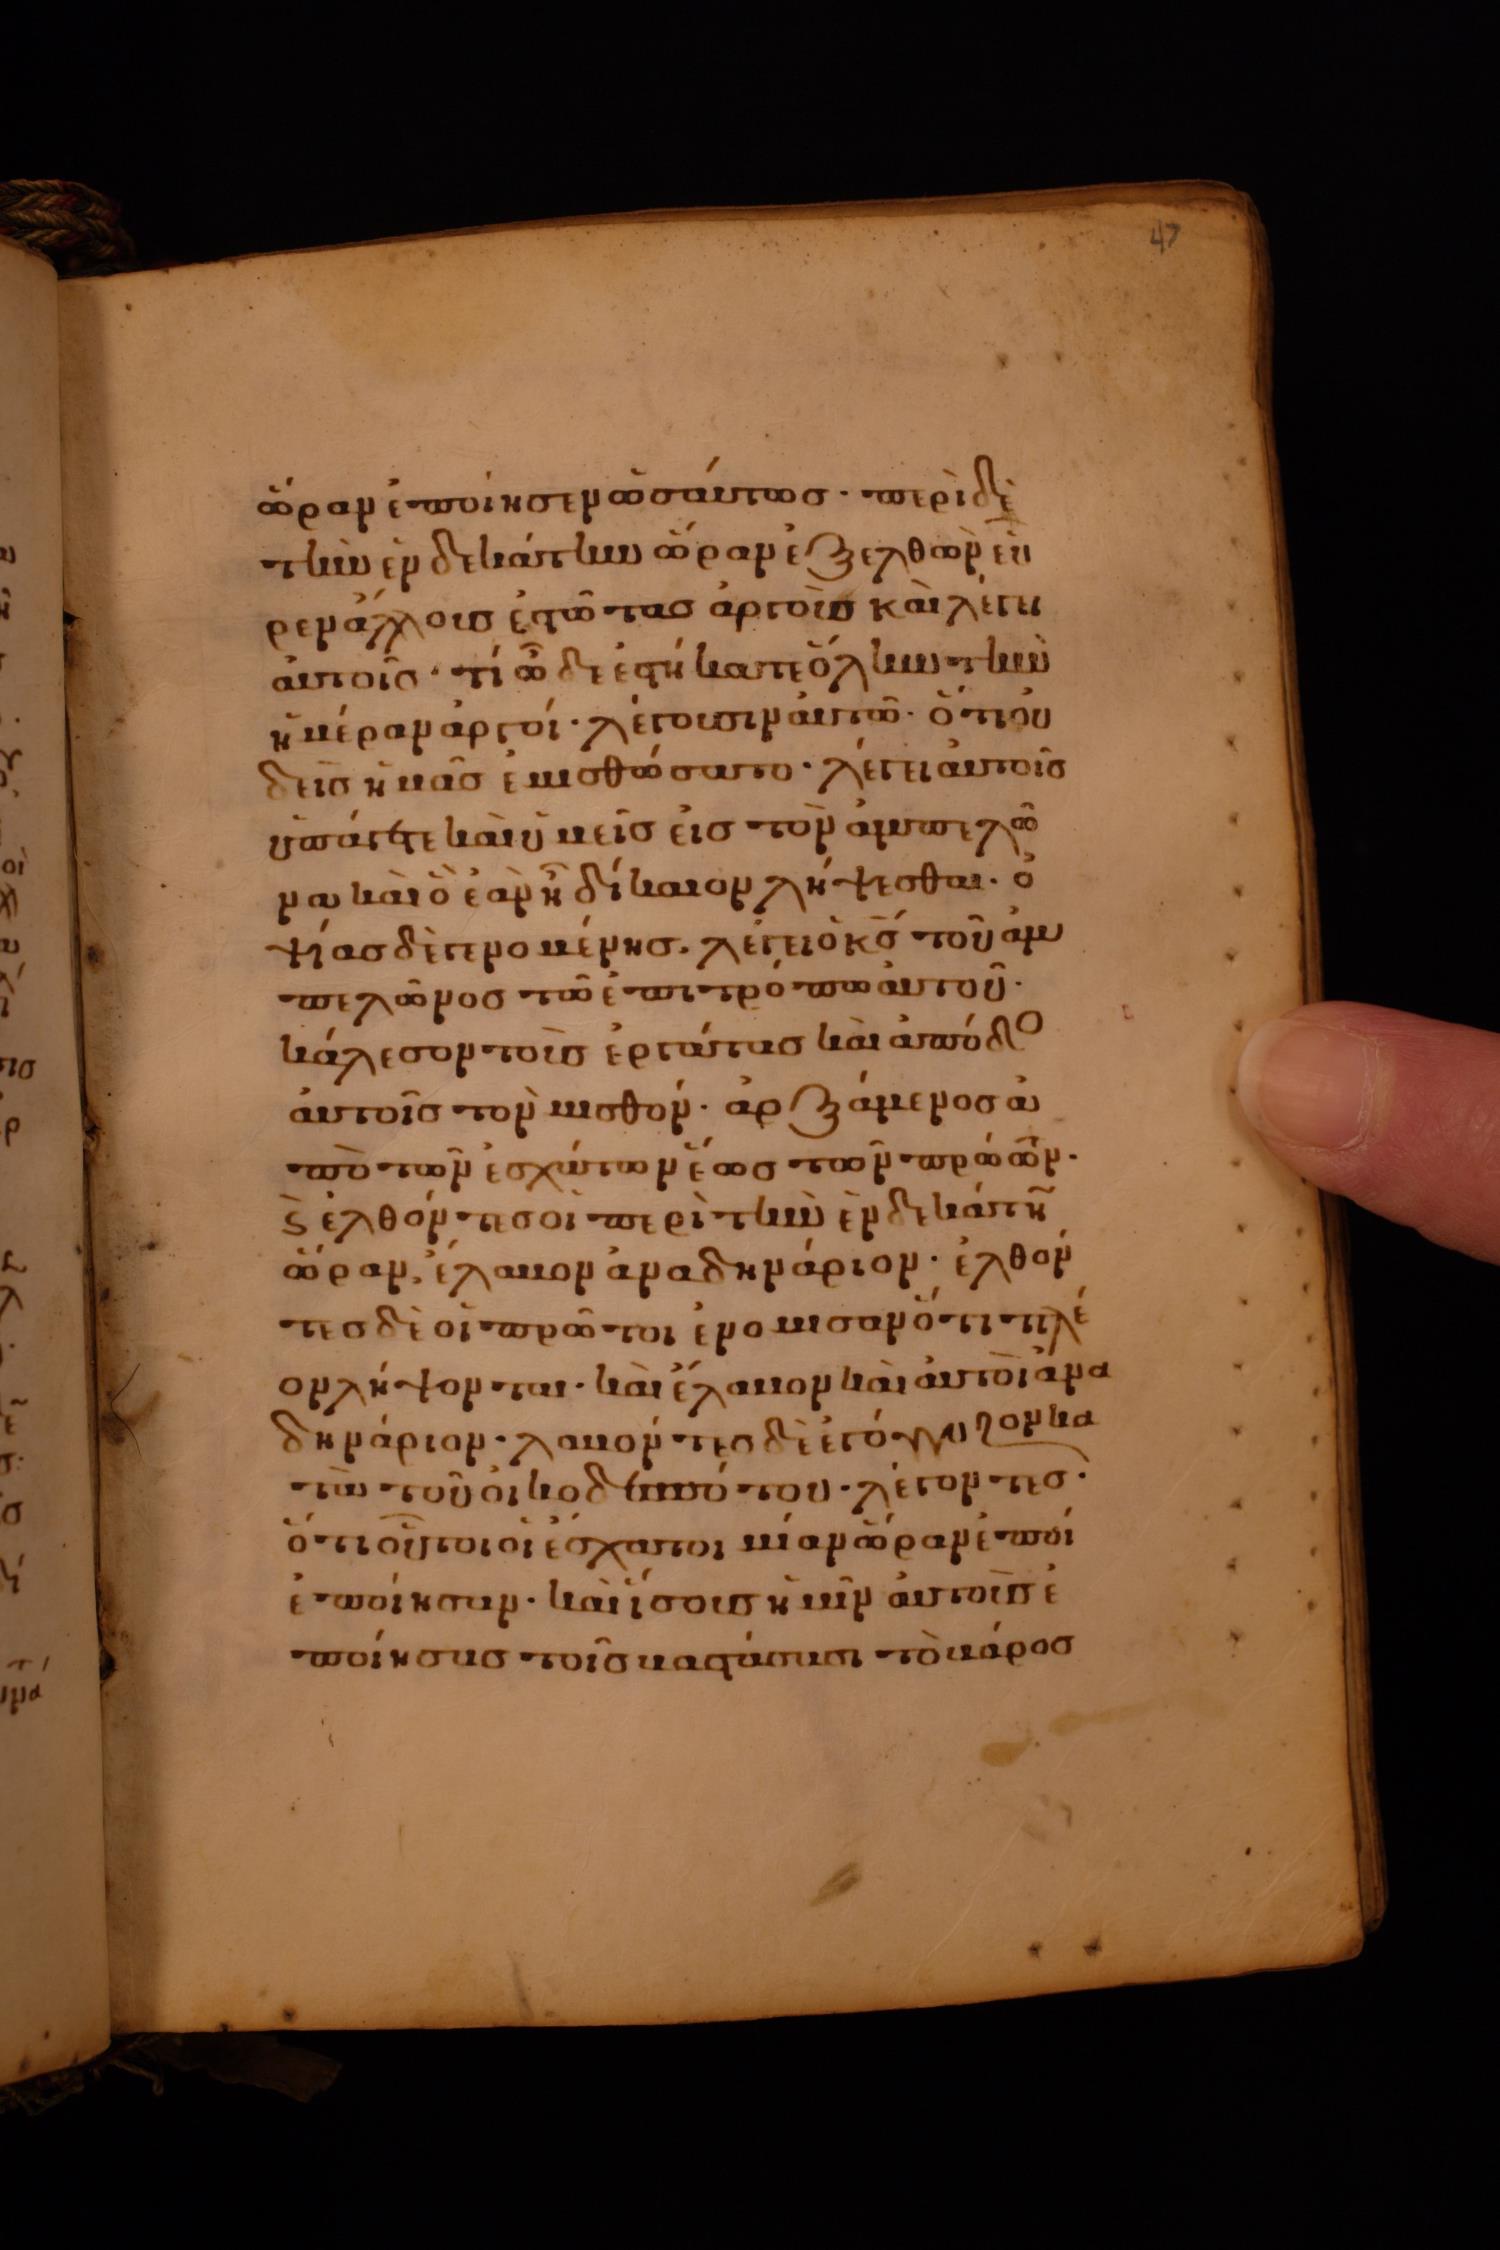 47
ὥραν ἐποίησεν ὡσάυτως · περὶ δὲ
τὴν ἑνδεκάτην ὥραν ἐξελθὼν εὑ
ρεν ἄλλους ἑστῶτας ἀργοὺς καὶ λέγει
ἀυτοῖς · τί ὧδε ἑστήκατε ὅλην τὴν
ἡμέραν ἀργοί · λέγουσιν ἀυτῶ · ὅτι ὀυ
δεὶς ἡμᾶς ἐμισθώσατο · λέγει ἀυτοῖς
ὑπάγετε καὶ ὑμεῖς εἰς τὸν ἀμπελῶ
να καὶ ὃ ἐὰν ῆ δίκαιον λήψεσθαι · ὀ
ψίας δὲ γενομένης · λέγει ὁ κς τοῦ ἀμ
πελῶνος τῶ ἐπιτρόπω ἀυτοῦ ·
κάλεσον τοὺς ἐργάτας καὶ ἀπόδο
ἀυτοῖς τὸν μισθόν · ἀρξάμενος ἀ
πὸ τῶν ἐσχάτων ἕως τῶν πρώων ·
ϛ ἐλθόντες οἱ περὶ τὴν ἑνδεκάτη
ὥραν, ἔλαβον ἀνα δηνάριον · ἐλθόν
τες δὲ οἱ πρῶτοι ἐνομισαν ὅτι πλέ
ον λήψονται · καὶ ἔλαβον καὶ ἀυτοὶ ἀνα
δηνάριον · λαβόντες δὲ ἐγόγγυζον κα
τὰ τοῦ ὀικοδεσπότου · λέγοντες ·
ὅτι οὗτοι οἱ ἔσχατοι μίαν ὥραν ἐποί
ἐποίησαν · καὶ ἴσους ἡμῖν ἀυτοὺς ἐ
ποίησας τοῖς βαστάσασι τὸ βάρος